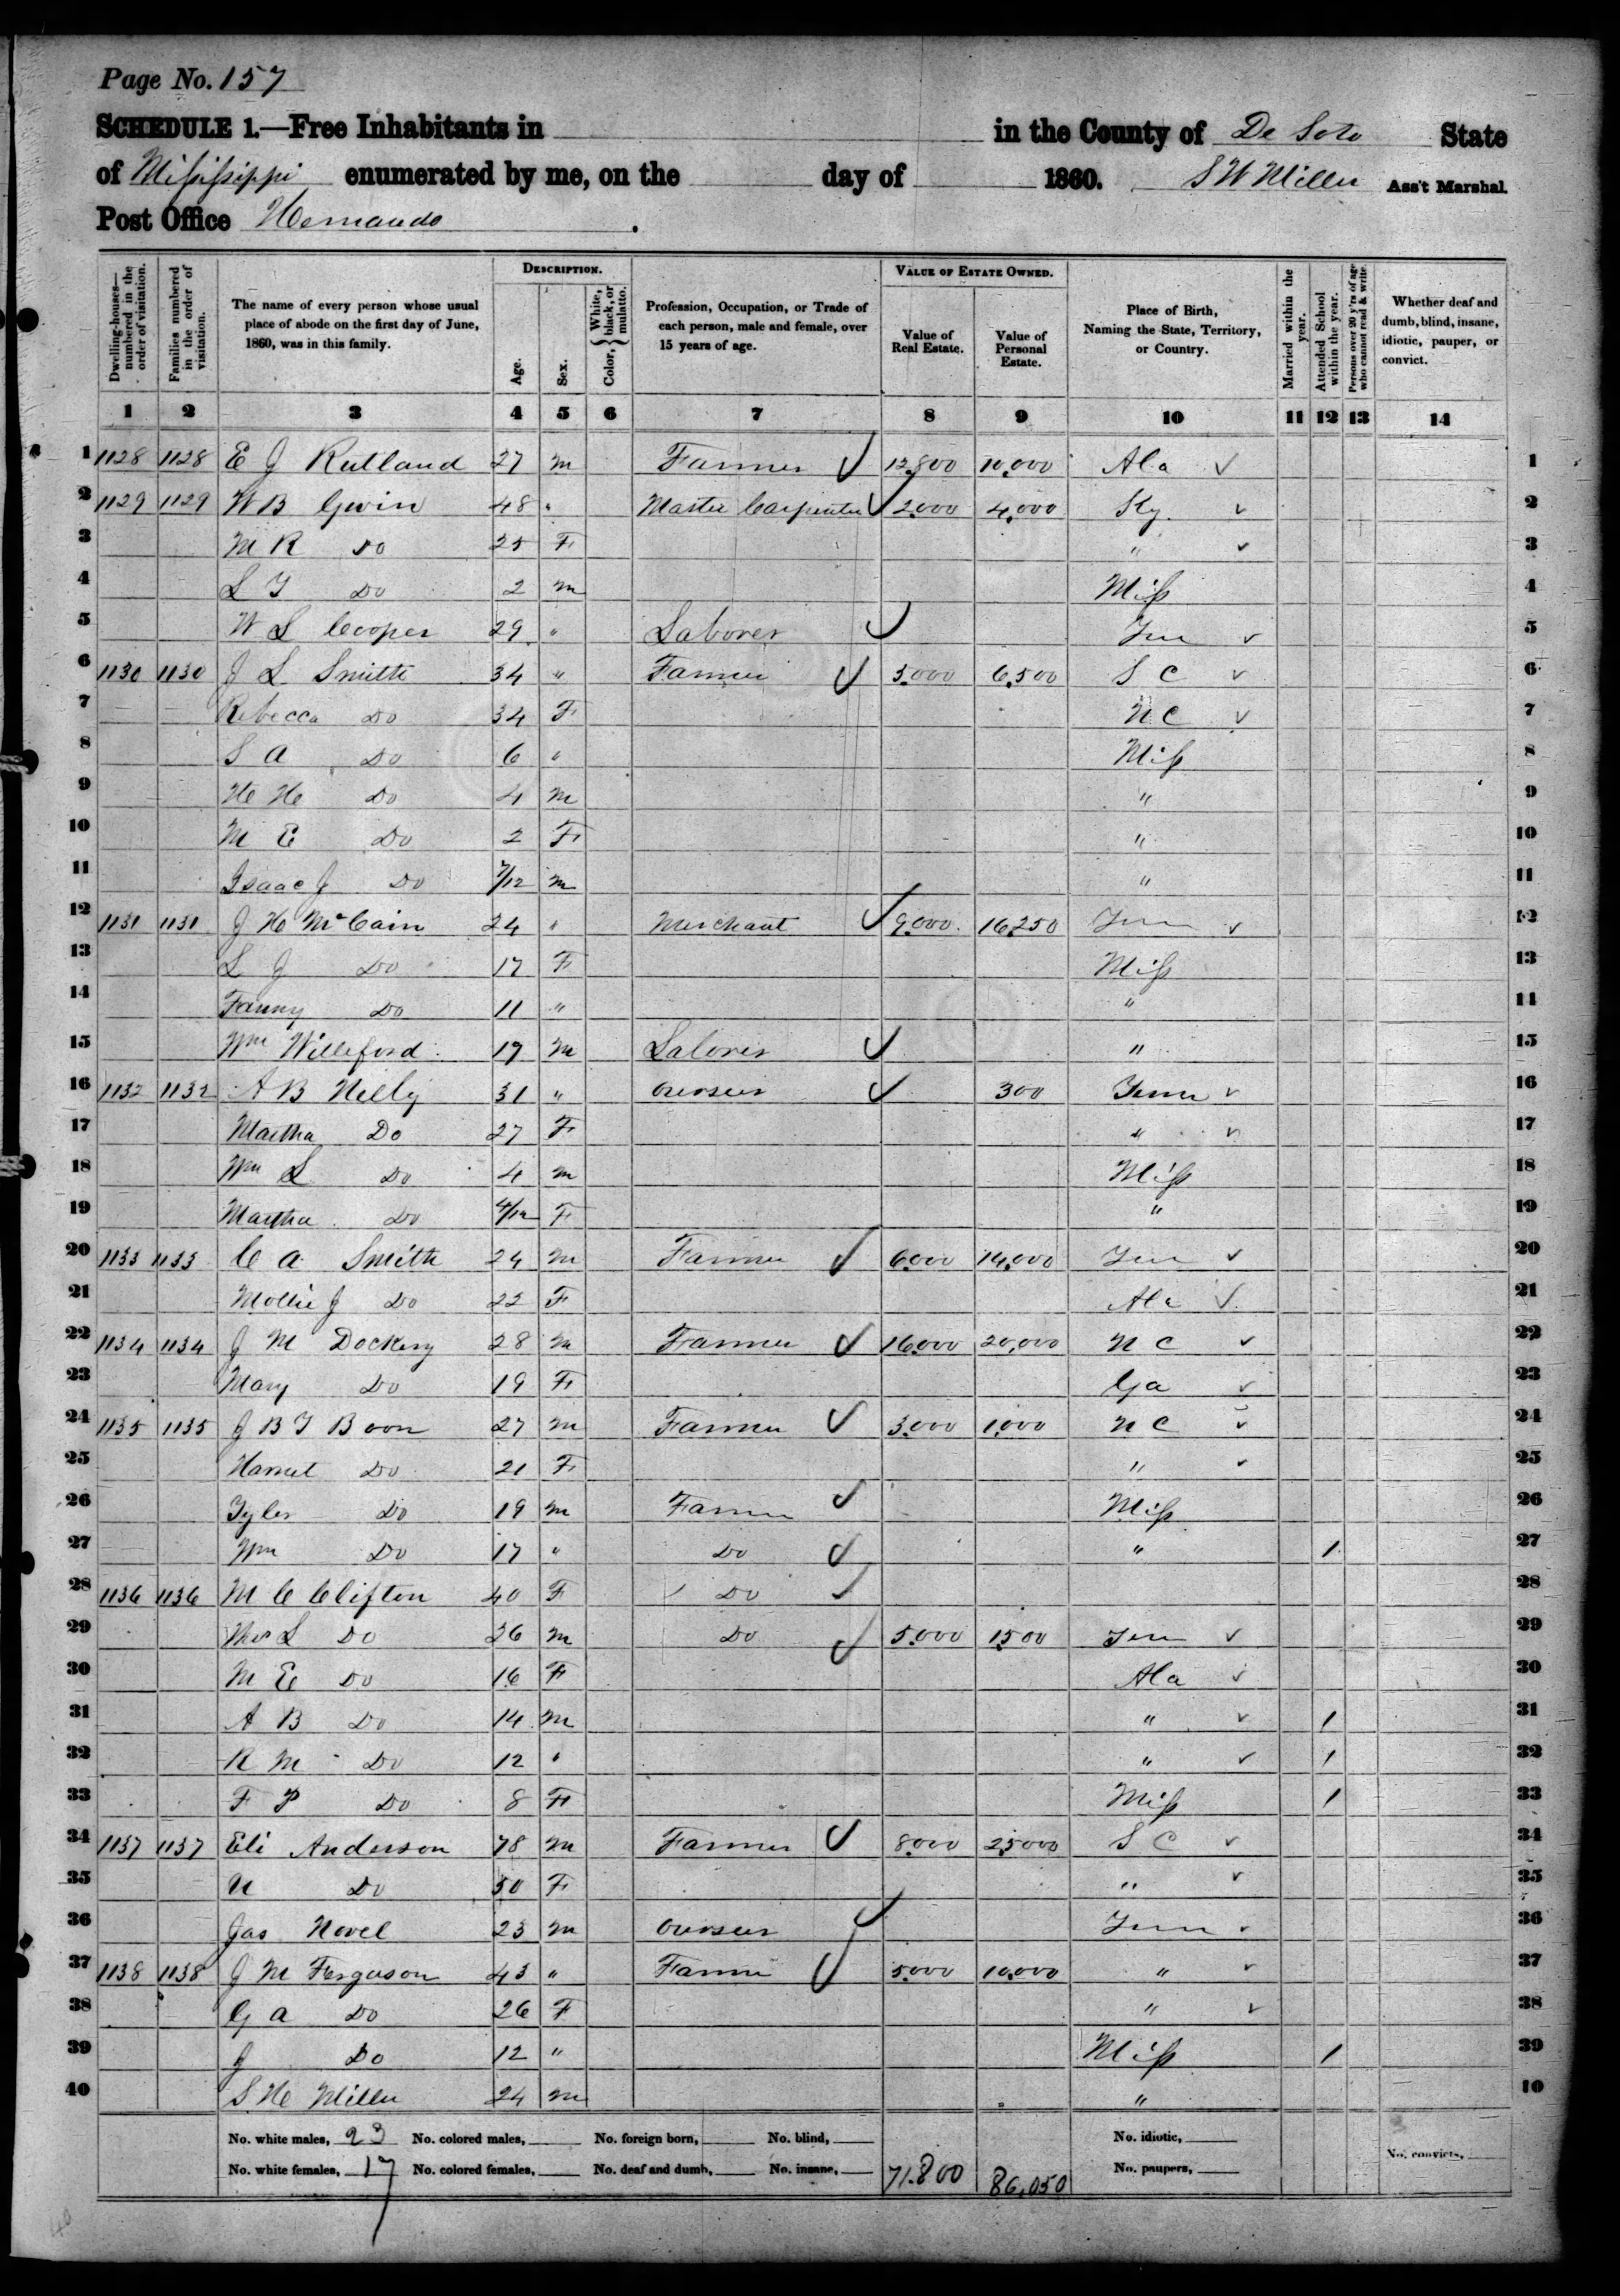 Page No. 157
SCHEDULE 1.—Free Inhabitants in in the County of De Soto State
of Mississippi enumerated by me, on the day of 1860. S W Miller Ass't Marshal.
Post Office Hernando .
Dwelling-houses—numbered in the order of visitation. Families numbered in the order of visitation. The name of every person whose usual place of abode on the first day of June, 1860, was in this family. Description. Age. Sex. Color, { White, black, or mulatto. Profession, Occupation, or Trade of each person, male and female, over 15 years of age. Value of Estate Owned. Value of Real Estate. Value of Personal Estate. Place of Birth, Naming the State, Territory, or Country. Married within the year. Attended School within the year. Persons over 20 y'rs of age who cannot read & write. Whether deaf and dumb, blind, insane, idiotic, pauper, or convict.
1 2 3 4 5 6 7 8 9 10 11 12 13 14
1 1128 1128 E J Rutland 27 m Farmer 12,800 10,000 Ala 1
2 1129 1129 W B Gwin 48 " Master Carpenter 2,000 4,000 Ky. 2
3 M R Do 25 F " 3
4 L T Do 2 m Miss 4
5 W L Cooper 29 " Laborer Ten 5
6 1130 1130 J L Smith 34 " Farmer 5,000 6,500 S C 6
7 Rebecca Do 34 F N C 7
8 S A Do 6 " Miss 8
9 H H Do 4 m " 9
10 M E Do 2 F " 10
11 Isaac J Do 7/12 m " 11
12 1131 1131 J H McCain 24 " Merchant 9,000 16,250 Tenn 12
13 L J Do 17 F Miss 13
14 Fanny Do 11 " " 14
15 Wm Williford 17 m Laborer " 15
16 1132 1132 A B Nelly 31 " overseer 300 Tenn 16
17 Martha Do 27 F " 17
18 Wm L Do 4 m Miss 18
19 Martha Do 4/12 F " 19
20 1133 1133 C A Smith 24 m Farmer 6,000 14,000 Ten 20
21 Mollie J Do 22 F Ala 21
22 1134 1134 J M Dockery 28 m Farmer 16,000 20,000 N C 22
23 Mary Do 19 F Ga 23
24 1135 1135 J B T Boon 27 m Farmer 3,000 1,000 N C 24
25 Harriet Do 21 F " 25
26 Tyler Do 19 m Farmer Miss 26
27 Wm Do 17 " Do " 1 27
28 1136 1136 M C Clifton 40 F Do 28
29 L Do 26 m Do 5,000 1,500 Tenn 29
30 M E Do 16 F Ala 30
31 A B Do 14 m " 1 31
32 R M Do 12 " " 1 32
33 F P Do 8 F Miss 1 33
34 1137 1137 Eli Anderson 78 m Farmer 8,000 25,000 S C 34
35 N Do 50 F " 35
36 Jas Novel 23 m overseer Tenn 36
37 1138 1138 J M Ferguson 43 " Farmer 5,000 10,000 " 37
38 G A Do 26 F " 38
39 J Do 12 " Miss 1 39
40 S H Miller 24 m " 40
No. white males, 23 No. colored males, No. foreign born, No. blind, No. idiotic, No. convicts,
No. white females, 17 No. colored females, No. deaf and dumb, No. insane, 71.800 86,050 No. paupers,